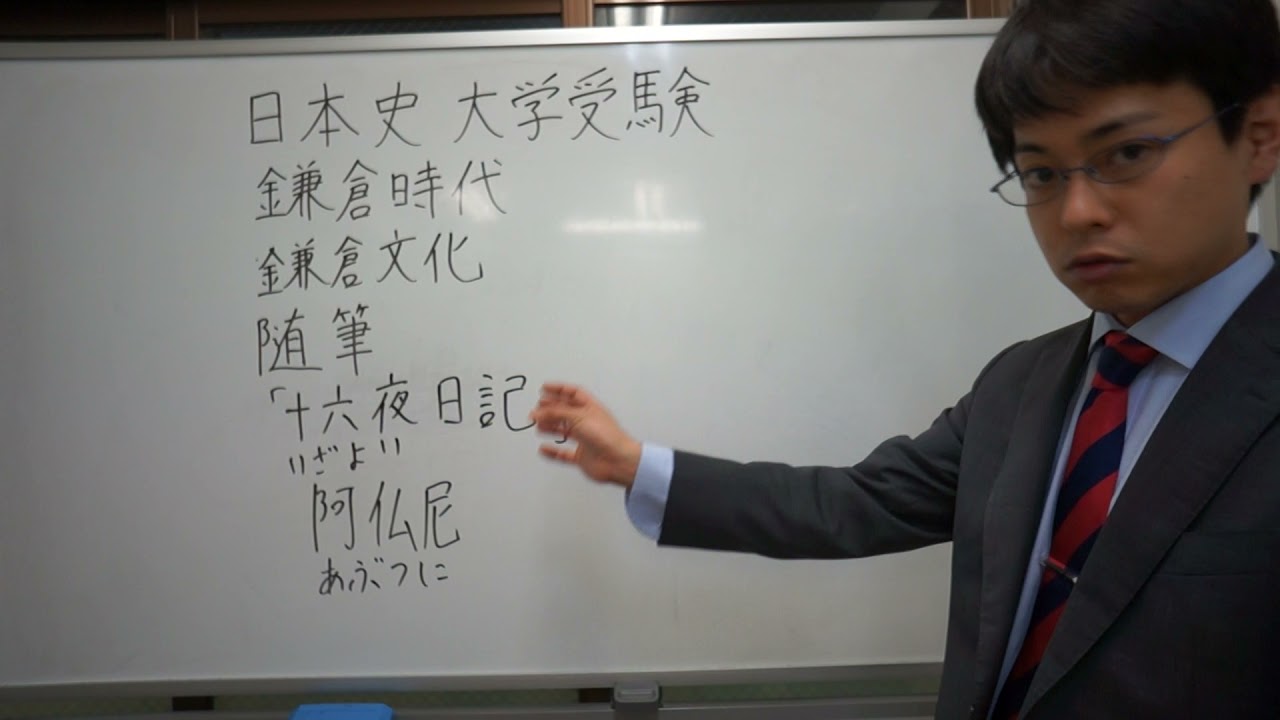 日本史 大学受験
鎌倉時代
鎌倉文化
随筆
「十六夜日記」
いざよい
阿仏尼
あぶつに